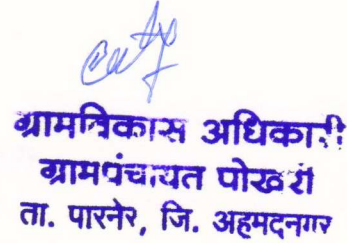 ग्रामविकास अधिकारी
ग्रामपंचायत पोखरी
ता. पारनेर, जि. अहमदनगर